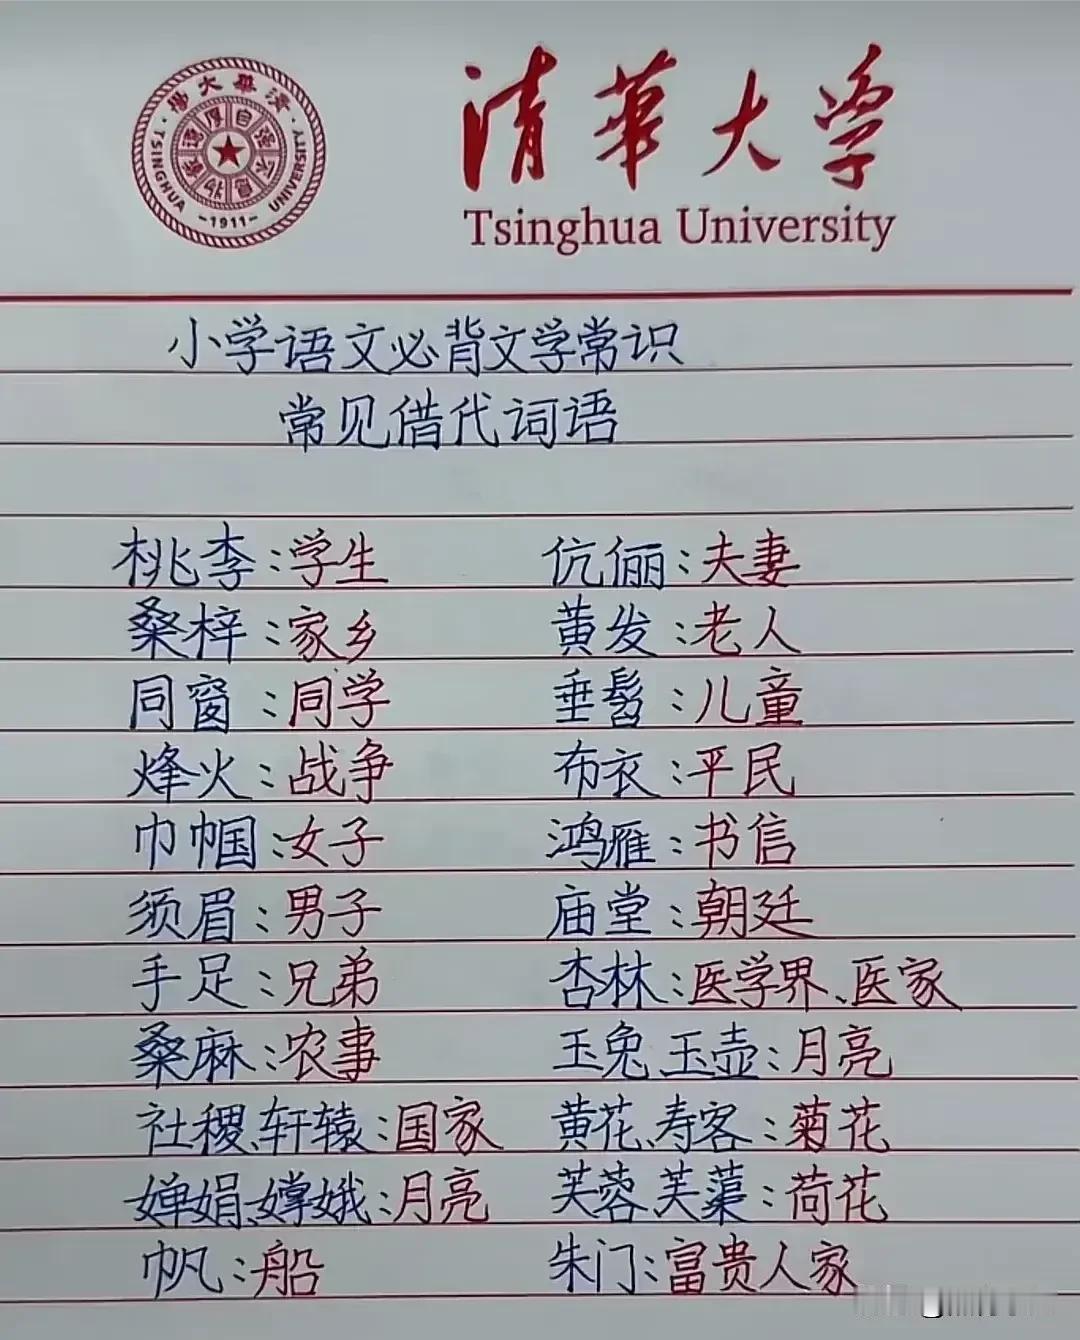 清華大学
Tsinghua University
清華大學
TSINGHUA UNIVERSITY
自强不息
厚德载物
-1911-
小学语文必背文学常识
常见借代词语
桃李:学生 伉俪:夫妻
桑梓:家乡 黄发:老人
同窗:同学 垂髫:儿童
烽火:战争 布衣:平民
巾帼:女子 鸿雁:书信
须眉:男子 庙堂:朝廷
手足:兄弟 杏林:医学界、医家
桑麻:农事 玉兔、玉壶:月亮
社稷、轩辕:国家 黄花、寿客:菊花
婵娟、嫦娥:月亮 芙蓉、芙蕖:荷花
帆:船 朱门:富贵人家